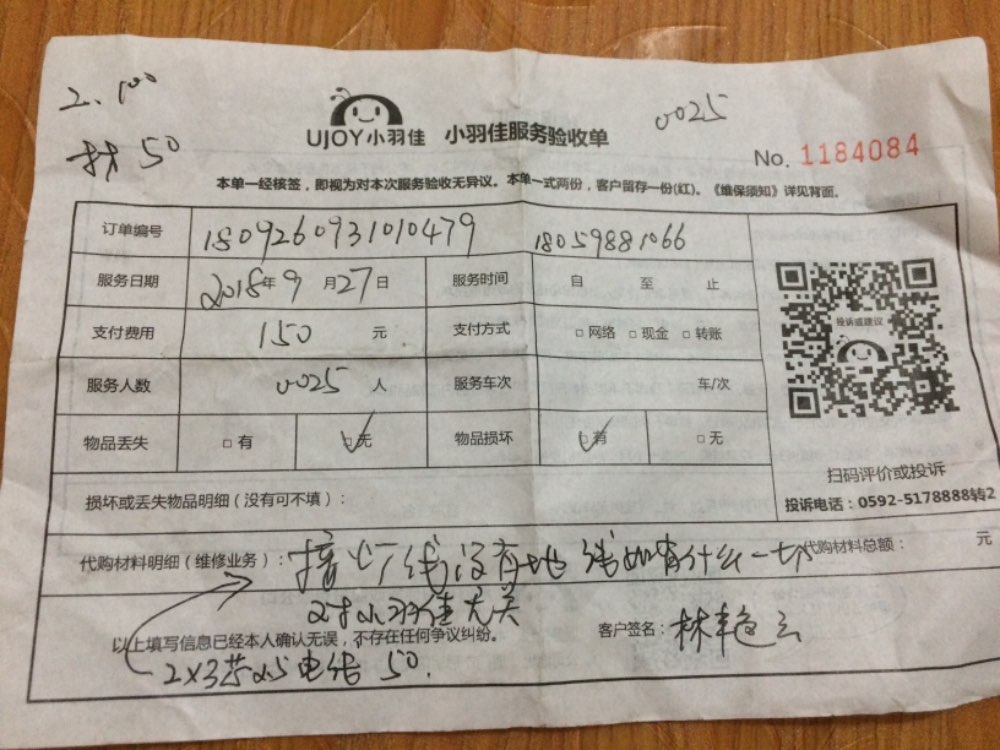 2. 100
材 50
UJOY小羽佳 小羽佳服务验收单
0025
No. 1184084
本单一经核签，即视为对本次服务验收无异议。本单一式两份，客户留存一份(红)。《维保须知》详见背面。
订单编号 1809260931010479 18059881066
服务日期 2018年9月27日 服务时间 自 至 止
支付费用 150 元 支付方式 □网络 □现金 □转账
服务人数 0025 人 服务车次 车/次
物品丢失 □有 □无 物品损坏 □有 □无
投诉或建议
扫码评价或投诉
投诉电话：0592-5178888转2
损坏或丢失物品明细（没有可不填）：
代购材料明细（维修业务）：接灯线没有地线如有什么一切 代购材料总额： 元
与小羽佳无关
以上填写信息已经本人确认无误，不存在任何争议纠纷。 客户签名：林
2x3芯 2.5 电线 50.